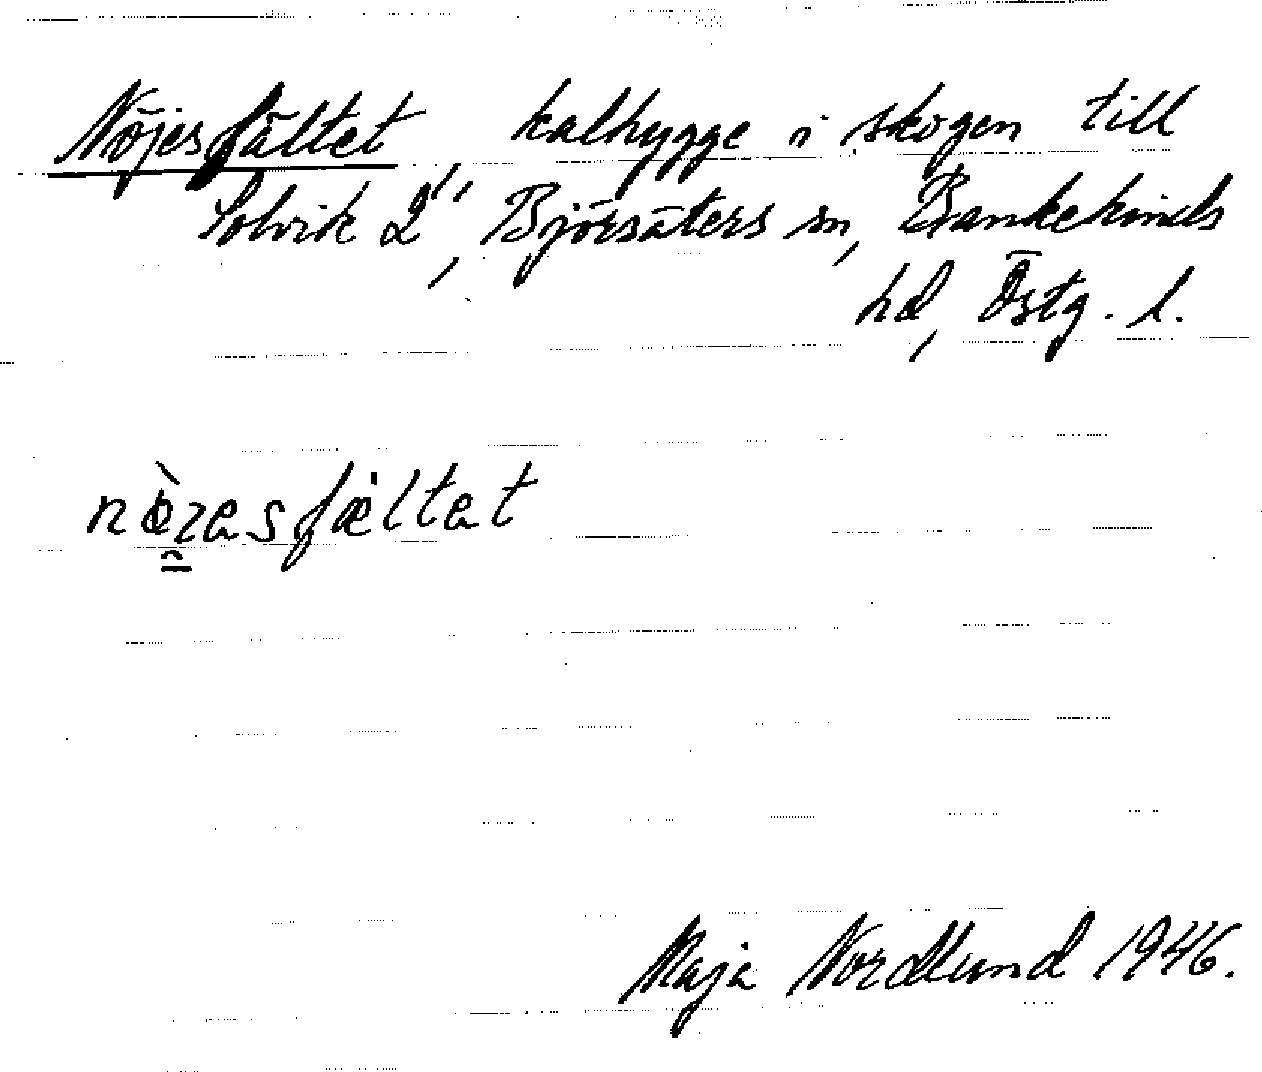 Nöjesfältet, kalhygge i skogen till
Solvik 2", Björsäters sn, Bankekinds
hd, Östg. l.
nø̀zəsfæ̍ltət
Maja Nordlund 1946.